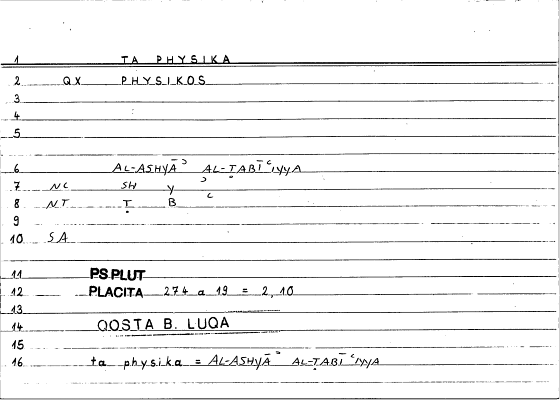 1 TA PHYSIKA
2 QX PHYSIKOS
3
4
5
6 AL-ASHYĀʾ AL-ṬABĪʿIYYA
7 NC SH Y ʾ
8 NT Ṭ B ʿ
9
10 SA
11 PS.PLUT
12 PLACITA 274 a 19 = 2,10
13
14 QOSTA B. LUQA
15
16 ta physika = AL-ASHYĀʾ AL-ṬABĪʿIYYA